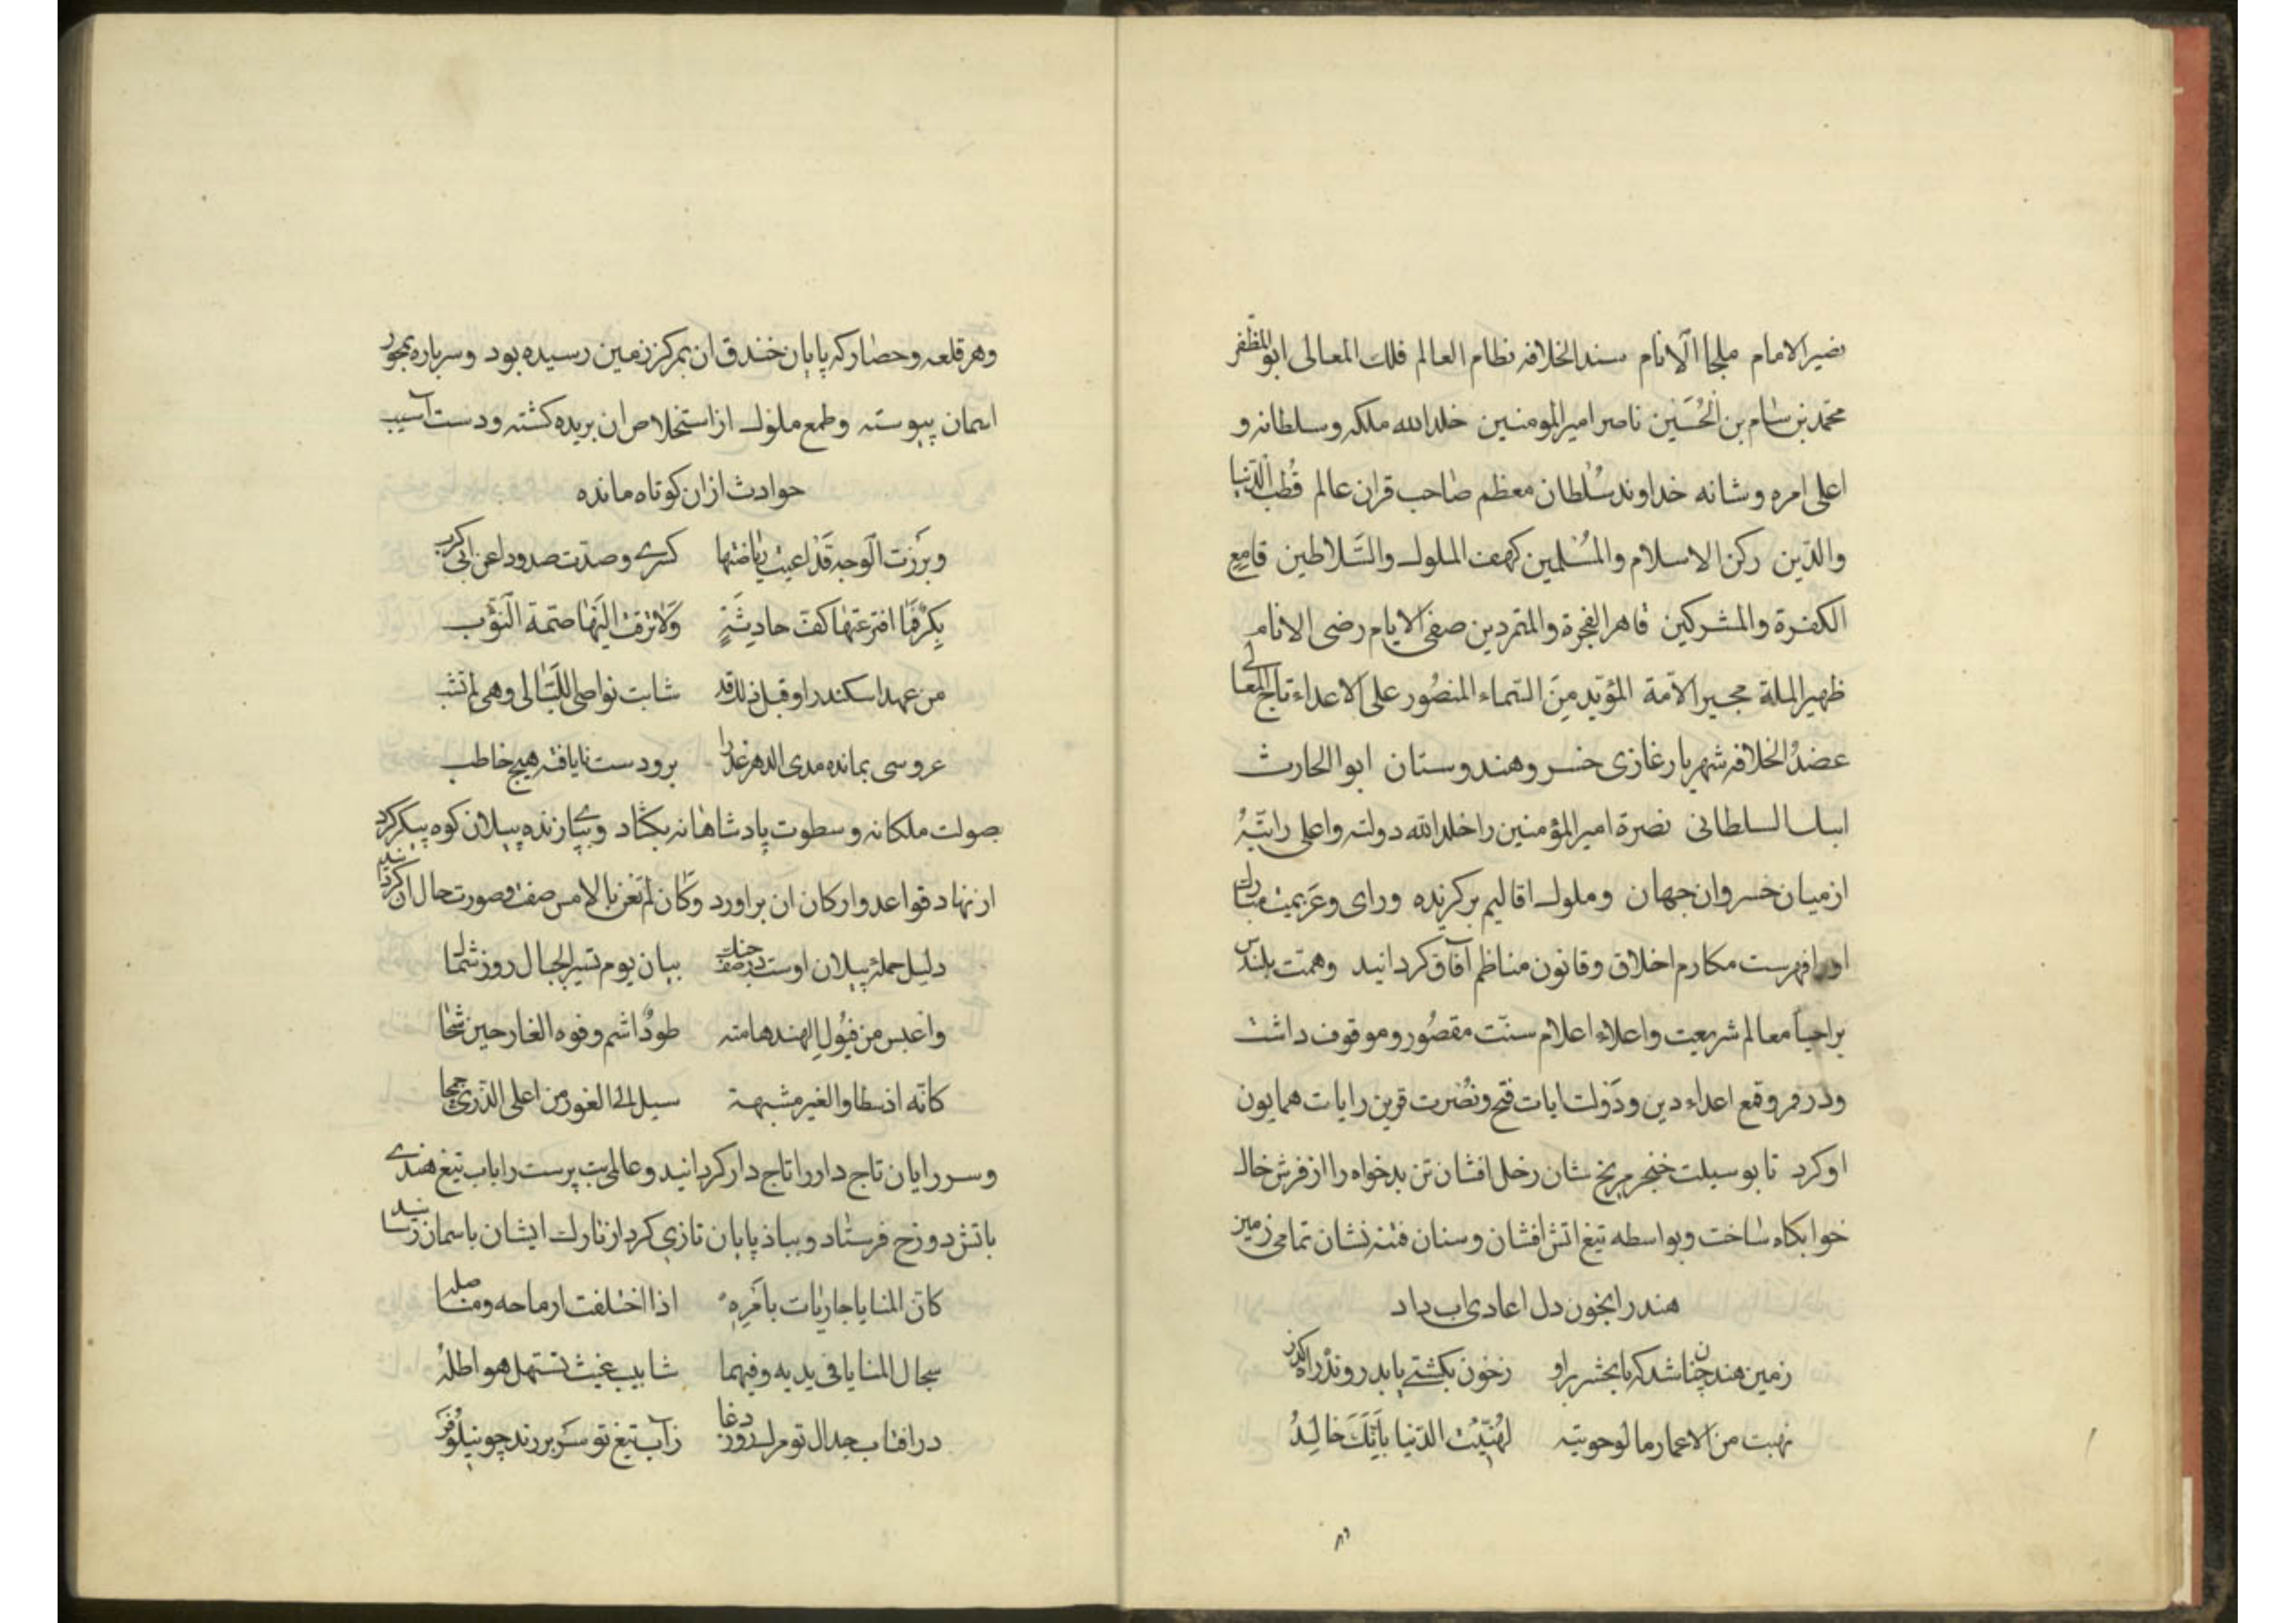 نصیر الامام ملجا الانام سند الخلافه نظام العالم فلک المعالی ابو المظفر
محمد بن سام بن الحُسَین ناصر امیر المومنین خلد الله ملکه و سلطانه و
اعلی امره و شانه خداوند سُلطان معظم صاحب قران عالم قُطب الدُّنیا
والدّین رکن الاسلام والمُسْلمین کهف الملوک والسَّلاطین قامع
الکفرة والمشرکین قاهر الفجرة والمتمردین صفی الایام رضی الانام
ظهیر الملة مجیر الامّة المؤیّد مِنَ السّماء المنصُور علی الاعداء تاج المعالی
عضدُ الخلافه شهریار غازی خسرو هندوستان ابو الحارث
ایبک السلطانی نصرة امیر المؤمنین را خلد الله دولته و اعلی رایتهُ
از میان خسروان جهان و ملوک اقالیم برکزیده و رای و عَزیمت مبارک
او را فهرست مکارم اخلاق و قانون مناظم آفاق کردانید و همّت بلندش
بر احیاء معالم شریعت و اعلاء اعلام سنّت مقصُور و موقوف داشت
و در قهر و قمع اعداء دین و دَولت ایات فتح و نُصْرت قرین رایات همایون
او کرد تا بوسیلت خنجر مریخ شان زحل افشان تن بدخواه را از فرش خاک
خوابکاه سَاخت و بواسطه تیغ اتش افشان و سنان فتنه نشان تمامی زمین
هند را بخون دل اعادی اب داد
زمین هند چنان شد که تا بحشر برو زخون بکشتی باید روندْ راه کذر
نهبت من الاعمار ما لو حویته لهُنّئِت الدّنیا بِاَنَّکَ خالِدُ
و هر قلعه و حصار که پایان خندق ان بمرکز زمین رسیده بود و سر باره بمحور
اسمان پیوسته و طمع ملوک از استخلاص ان بریده کشته و دست آسیب
حوادث از ان کوتاه مانده
وبَرْزت الوجه قَدْ اعیت ریاضتها کسری وصدّت صدودا عن ابی کرب
بِکْرٌ فَمَا افترعتها کفّ حادِثَةٍ وَلَا ترقّت الیَها همّة النُّوَب
من عهد اسکندر او قبل ذلک قد شابت نواصی اللّیالی وهی لم تشب
عروسی بمانده مدی الدهر عذرا برو دست نایافته هیچ خاطب
بصولت ملکانه و سطوت پادشاهانه بکشاد و بپی زنده پیلان کوه پیکر کرد
از نهاد قواعد و ارکان ان براورد و کَان لَم تَغن بالامس صفت و صورت حال ان کردانید
دلیل حمله پیلان اوست در صف جنک بیان یوم تسیر الجبال روز شمار
واعبس من فیُولِ الهند هامته طودٌ اشم وفوه الغار حین شحا
کانّه اذ سطا والغیر مشبهة سیل الی الغور من اعلی الذری
و سر رایان تاج دار را تاج دار کردانید و عالمی بت پرست را باب تیغ هندی
باتش دوزخ فرستاد و بباذ پایان تازی کرد از تارک ایشان باسمان رسانید
کانّ المنایا جاریَات بامرِهِ اذا اختلفت ارماحه ومناصله
سجال المنایا فی یدیه وفیهما شابیب غیث تستهل هواطلهُ
در افتاب جدال تو مرک روز دغا زآب تیغ تو سَر بر زند چو نیلُوفَر